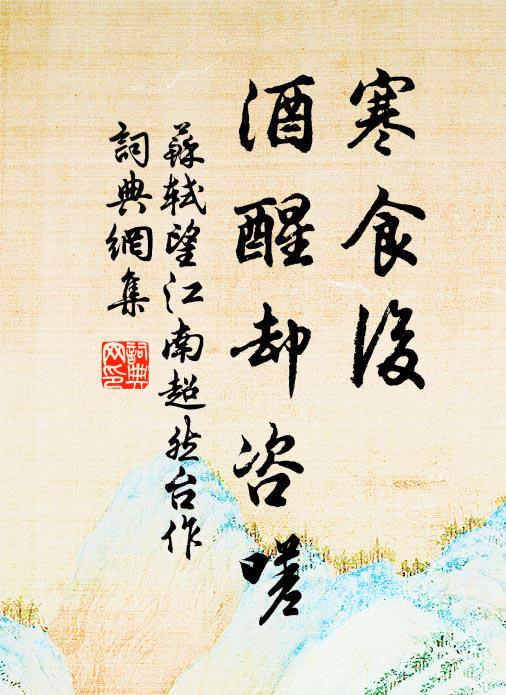 寒食後
酒醒却咨嗟
蘇軾望江南超然台作
詞典網集
詞典網印